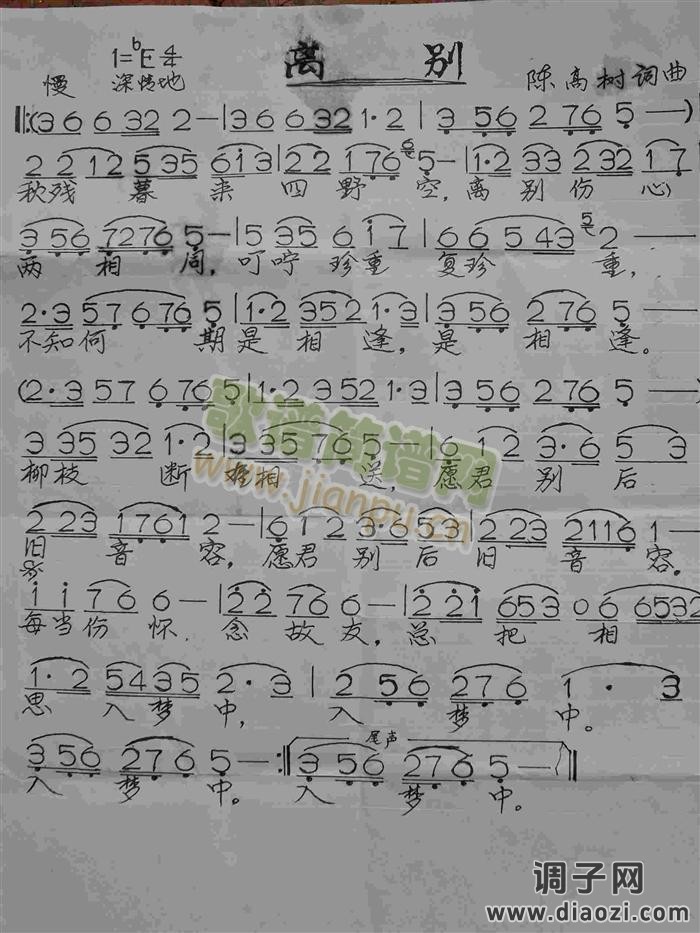 离 别
1=♭E 4/4
慢 深情地 陈高树词曲
‖:(3 6 6 32 2 —|3 6 6 32 1·2|3 56 2 76 5 —)
2 2 12 5 35 6 i 3|2 2 1 76 5 —|1·2 33 2 32 1 7
秋残 暮 来 四 野 空，离 别 伤 心
3 56 7276 5 —|5 35 6 i 7|6 6 5 43 2 —
两 相 周，叮咛 珍重 复珍 重，
2·3 57 6 76 5|1·2 352 1·3|3 56 2 76 5 —
不知何 期是 相 逢，是 相 逢。
(2·3 57 6 76 5|1·2 352 1·3|3 56 2 76 5 —)
3 35 32 1·2|3 35 76 5 —|6 1 2 3·6 5 3
柳枝 断 相 送，愿君 别 后
2 23 1761 2 —|6 1 2 3·6 53|2 23 2116 1 —
旧 音 容，愿君 别 后 旧 音 容。
i i 7 6 6 —|2 2 7 6 6 —|2 2 i 653 0 6 6532
每当伤 怀 念 故 友，总 把 相
1·2 5435 2·3|2 56 2 76 1·3
思 入 梦 中，入 梦 中。
尾声
3 56 276 5 —:‖3 56 276 5 —‖
入 梦 中。 入 梦 中。
歌谱简谱网
www.jianpu.cn
调子网
www.diaozi.com